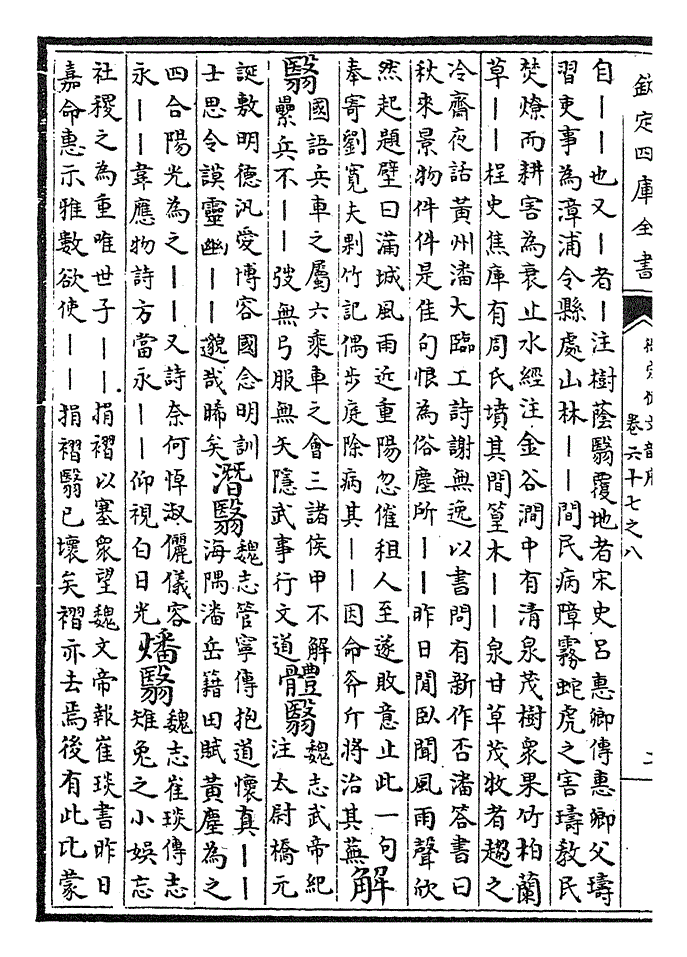 欽定四庫全書
卷六十七之八
自——也又—者—注樹蔭翳覆地者宋史呂惠卿傳惠卿父璹
習吏事為漳浦令縣處山林——間民病障霧蛇虎之害璹教民
焚燎而耕害為衰止水經注金谷澗中有清泉茂樹衆果竹柏蘭
草——桯史焦庫有周氏墳其間篁木——泉甘草茂牧者趨之
冷齋夜話黃州潘大臨工詩謝無逸以書問有新作否潘答書曰
秋來景物件件是佳句恨為俗塵所——昨日閒臥聞風雨聲欣
然起題壁曰滿城風雨近重陽忽催租人至遂敗意止此一句
奉寄劉寬夫剿竹記偶步庭除病其——因命斧斤將治其蕪
解
翳
國語兵車之屬六乘車之會三諸侯甲不解
纍兵不——弢無弓服無矢隱武事行文道
體翳
魏志武帝紀
注太尉橋元
誕敷明德汎愛博容國念明訓
士思令謨靈幽——邈哉晞矣
潛翳
魏志管寧傳抱道懷真——
海隅潘岳籍田賦黃塵為之
四合陽光為之——又詩奈何悼淑儷儀容
永——韋應物詩方當永——仰視白日光
燔翳
魏志崔琰傳志
雉兔之小娛忘
社稷之為重唯世子——捐褶以塞衆望魏文帝報崔琰書昨日
嘉命惠示雅數欲使——捐褶翳已壞矣褶亦去焉後有此比蒙